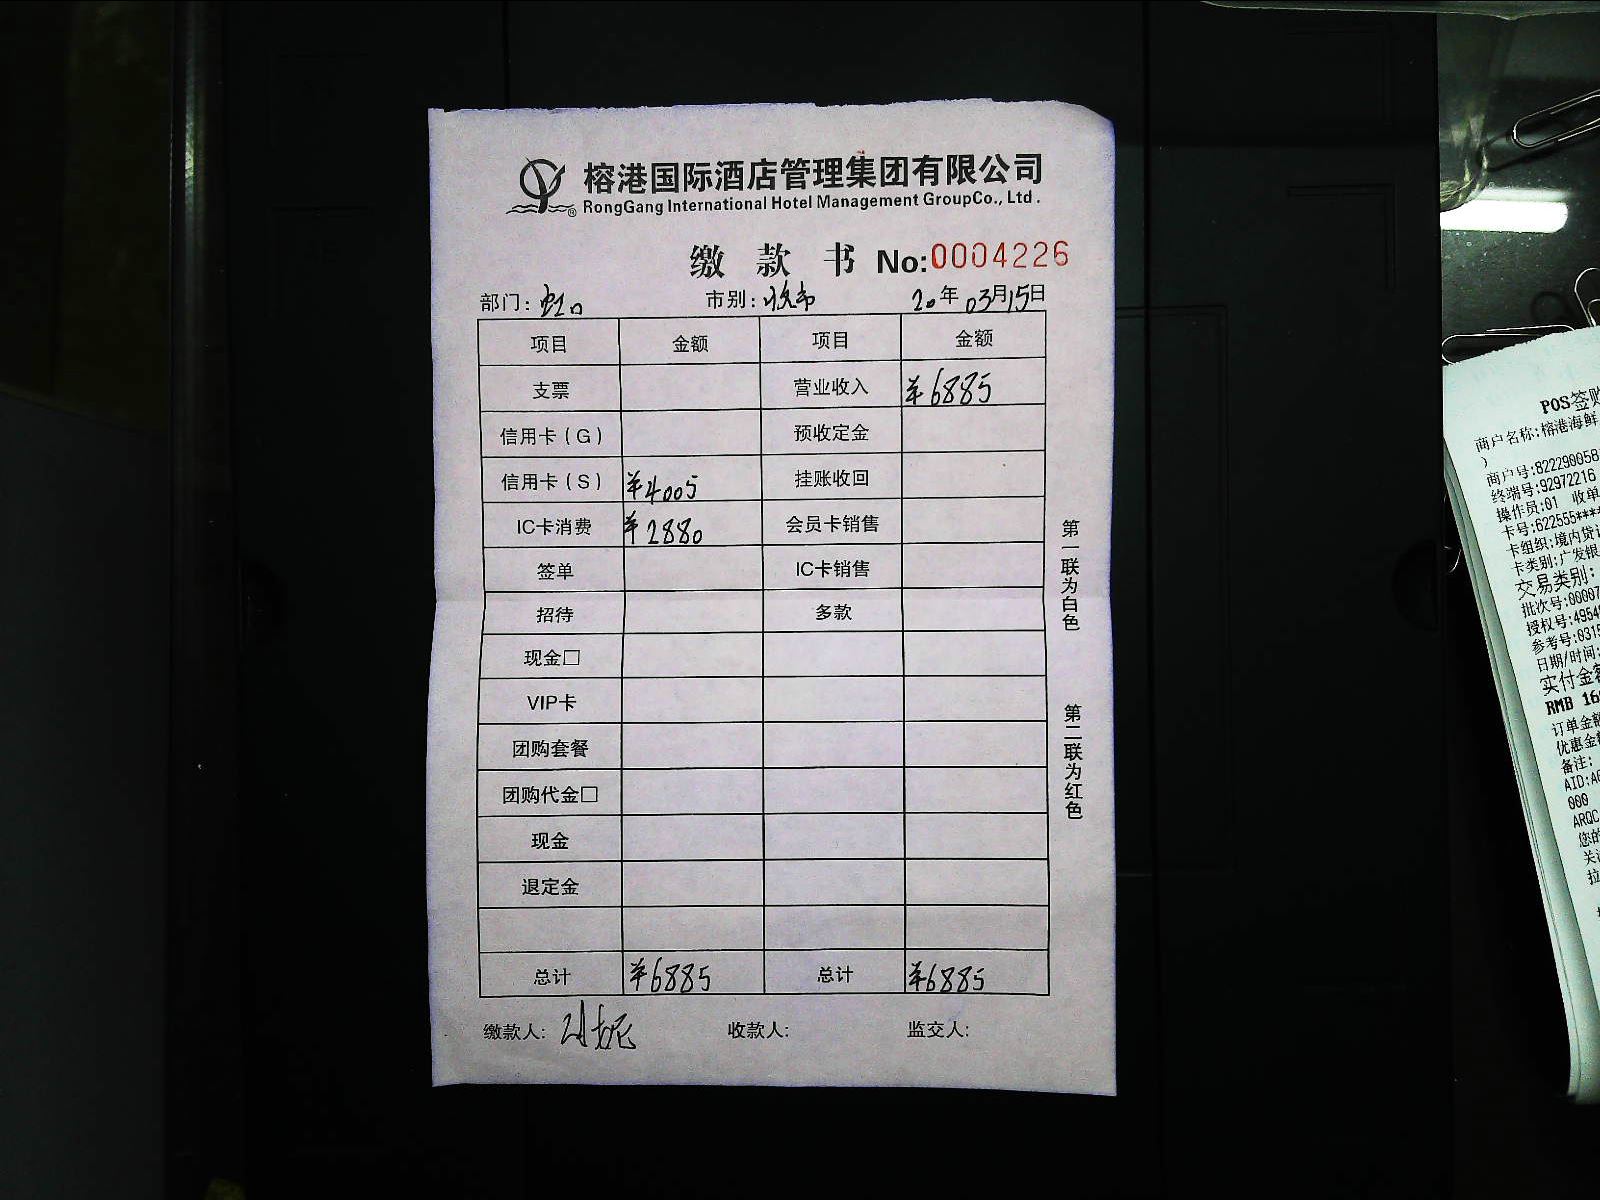 榕港国际酒店管理集团有限公司
RongGang International Hotel Management GroupCo., Ltd.
缴款书 No:0004226
部门:虹口 市别:收市 20年03月15日
项目 金额 项目 金额
支票 营业收入 ¥6885
信用卡(G) 预收定金
信用卡(S) ¥4005 挂账收回
IC卡消费 ¥2880 会员卡销售
签单 IC卡销售
招待 多款
现金□
VIP卡
团购套餐
团购代金□
现金
退定金
总计 ¥6885 总计 ¥6885
缴款人: 收款人: 监交人:
第一联为白色
第二联为红色
POS签购
商户名称:榕港海鲜
)
商户号:822290058
终端号:92972216
操作员:01 收单
卡号:622555****
卡组织:境内贷
卡类别:广发银
交易类别:
批次号:00007
授权号:4954
参考号:0315
日期/时间:
实付金额
RMB 16
订单金额
优惠金额
备注:
AID:A0
000
ARQC
您的
关